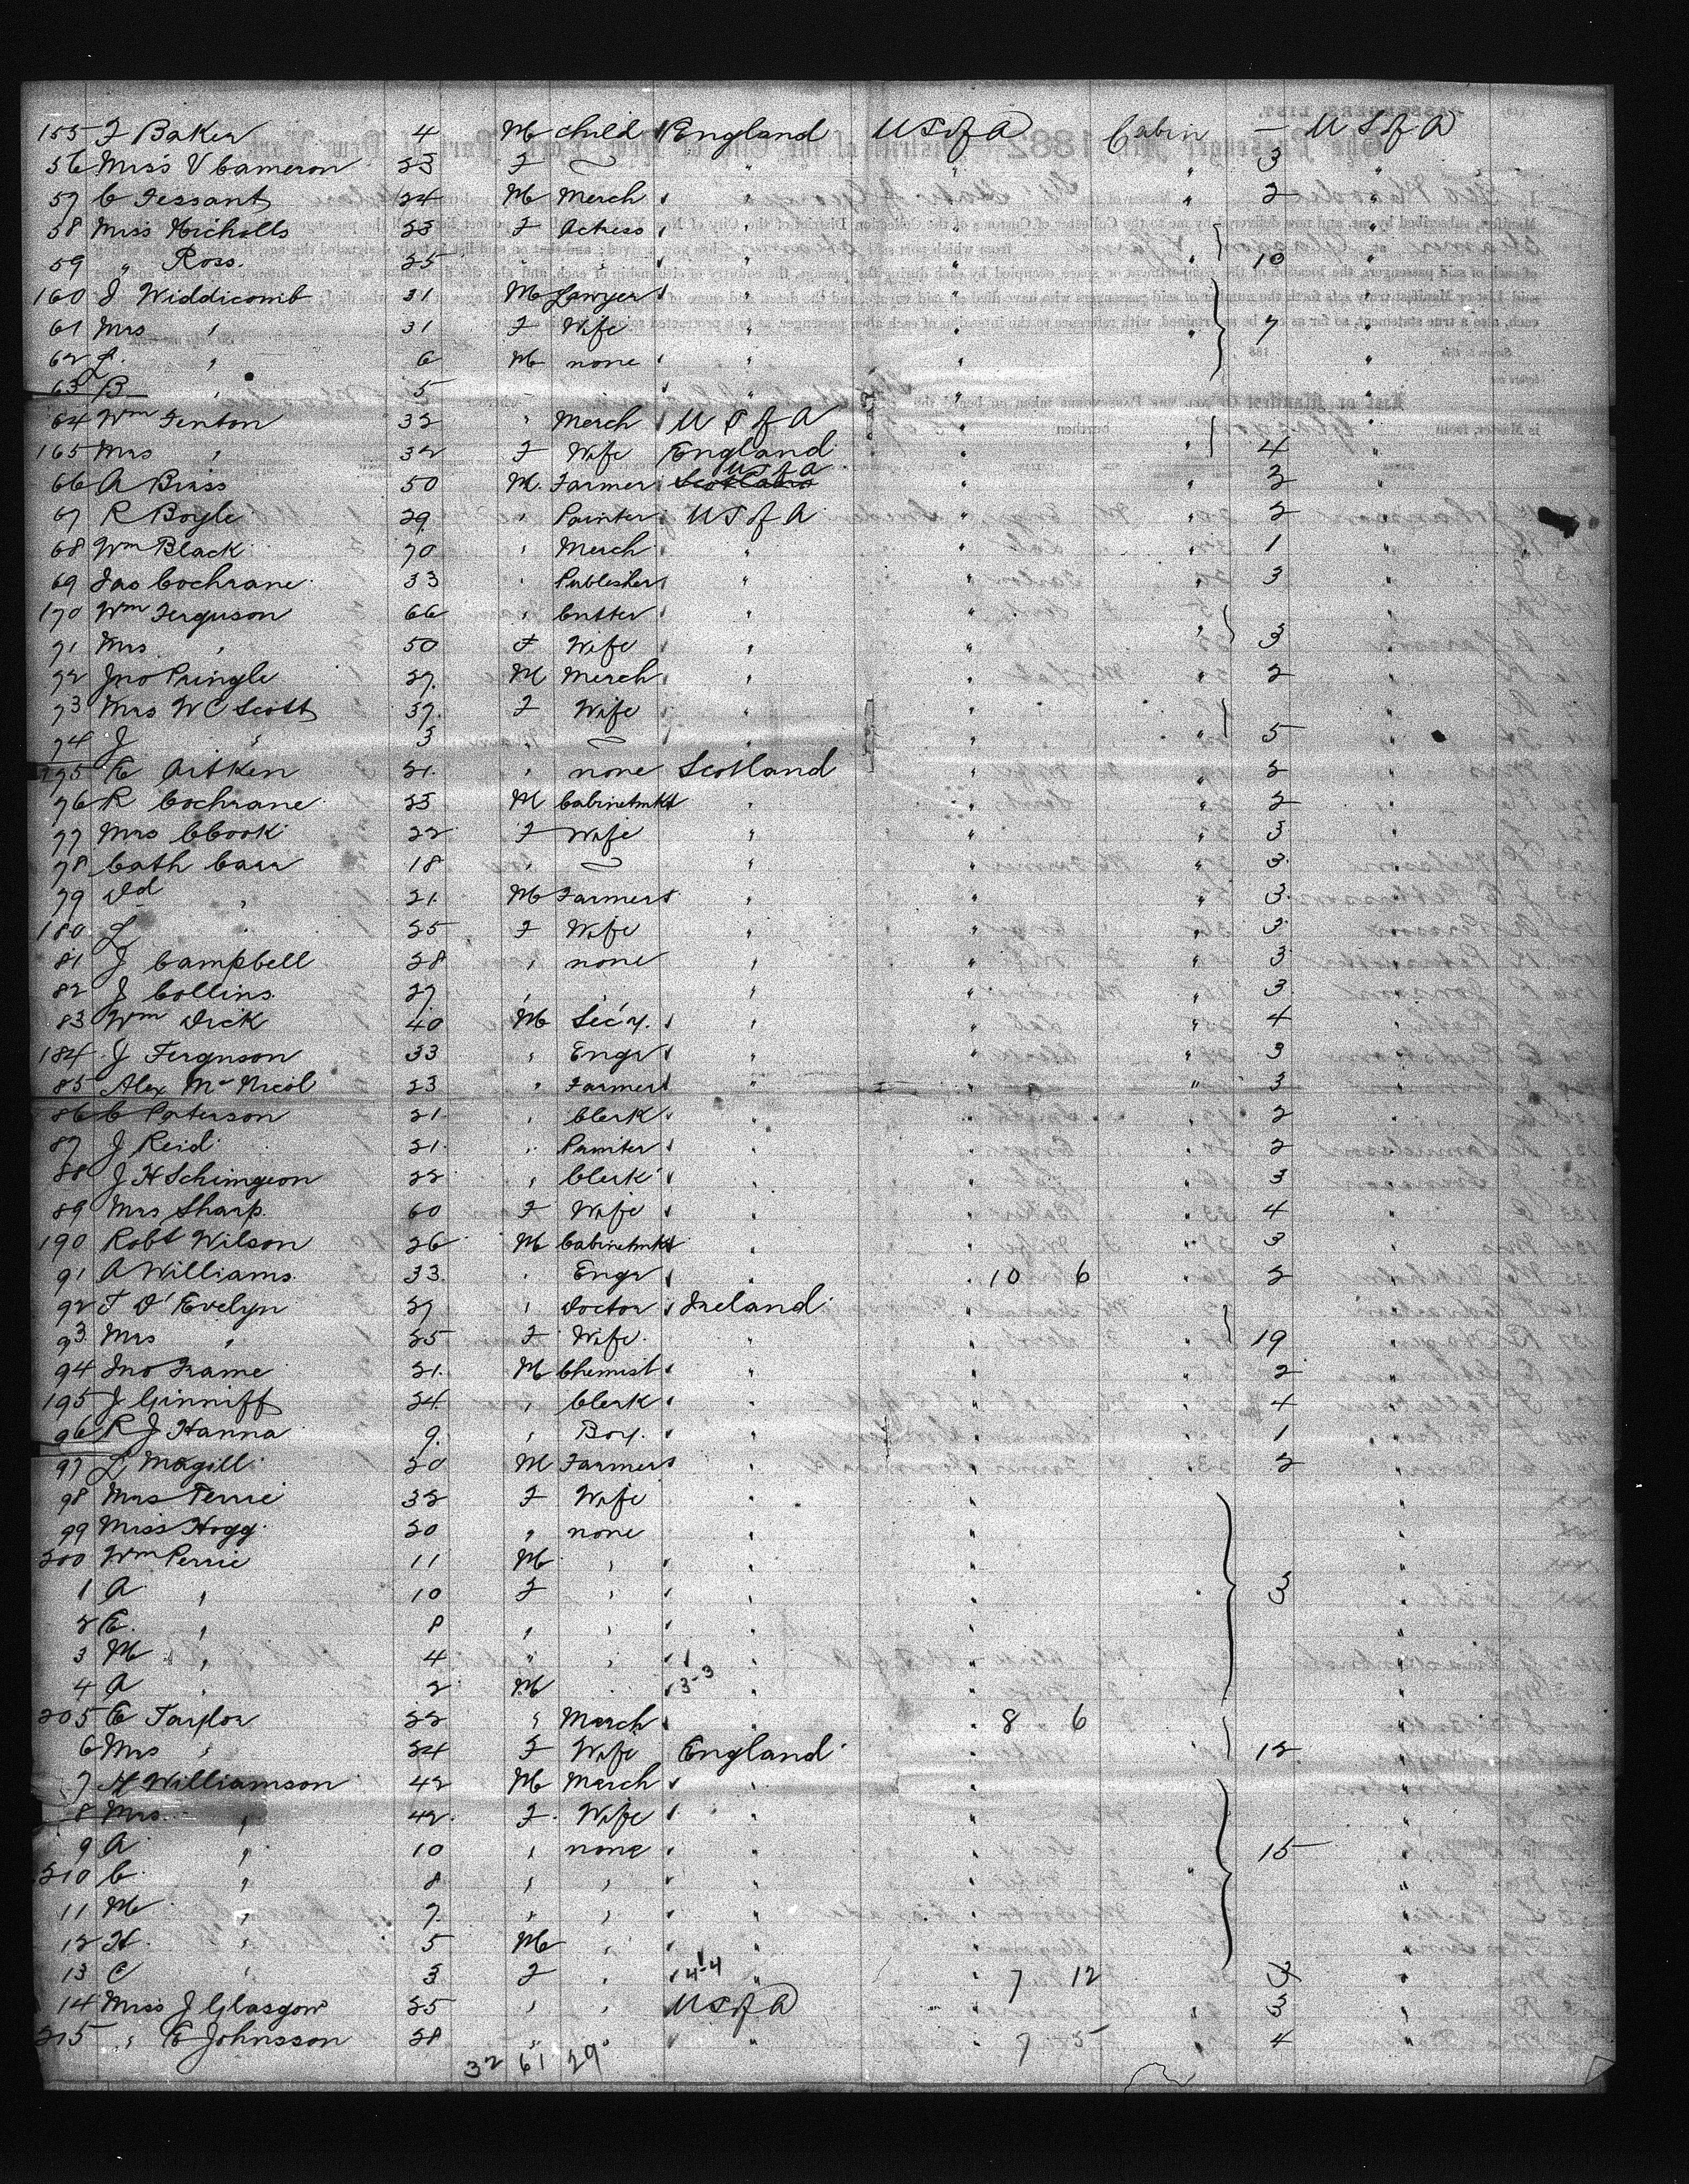 155 F Baker 4 M Child England USofA Cabin — USofA
56 Miss V Cameron 23 F " " " 3 "
57 C Tessant 24 M Merch " " " 2 "
58 Miss Nicholls 23 F Actress " " "
59 " Ross. 25 " " " " " 10 "
160 J Widdicomb 31 M Lawyer " " "
61 Mrs " 31 F Wife " " " 7 "
62 L. " 6 M none " " "
63 B " 5 " " "
64 Wm Fenton 32 " Merch USofA " "
165 Mrs " 32 F Wife England " " 4 "
66 A Briss 50 M. Farmer USofA " " 2 "
67 R Boyle 29 " Painter USofA " " 2 "
68 Wm Black 70 " Merch " " " 1 "
69 Jas Cochrane 33 " Publisher " " " 3 "
170 Wm Ferguson 66 " Cutter " " "
71 Mrs " 50 F Wife " " " 3 "
72 Jno Pringle 27 M Merch " " " 2 "
73 Mrs W C Scott 37 F Wife " " "
74 J " 3 " " " " 5 "
175 E Aitken 21 " none Scotland " " 2 "
76 R Cochrane 23 M Cabinetmkr " " " 2 "
77 Mrs C Cook 22 F Wife " " " 3 "
78 Cath Carr 18 " " " " 3 "
79 Dd " 21 M Farmer " " " 3 "
180 L " 25 F Wife " " " 3 "
81 J Campbell 28 " none " " " 3 "
82 J Collins 27 " " " " " 3 "
83 Wm Dick 40 M Sec'y. " " " 4 "
184 J Ferguson 33 " Engr " " " 3 "
85 Alex McNicol 23 " Farmer " " " 3 "
86 C Paterson 21 " Clerk " " " 2 "
87 J Reid 21 " Painter " " " 2 "
88 J H Schimgeon 22 " Clerk " " " 3 "
89 Mrs Sharp. 60 F Wife " " " 4 "
190 Robt Wilson 26 M Cabinetmkr " " " 3 "
91 A Williams 33 " Engr " " 10 6 " 2 "
92 T D'Evelyn 27 " Doctor Ireland " "
93 Mrs " 25 F Wife " " " 19 "
94 Jno Frame 21 M Chemist " " " 2 "
195 J Ginniff 24 " Clerk " " " 4 "
96 R J Hanna 9 " Boy. " " " 1 "
97 L Magill 20 M Farmer " " " 2 "
98 Mrs Perrie 32 F Wife " " "
99 Miss Hogg 20 " none " " "
200 Wm Perrie 11 M " " " "
1 A " 10 F " " " " 3 "
2 E. " 8 " " " " "
3 M " 4 " " 1 " "
4 A " 2 M 3-3 " "
205 E Taylor 22 " March " " 8 6 "
6 Mrs " 24 F Wife England " 12 "
7 H Williamson 42 M March " " "
8 Mrs. " 42 F. Wife " " "
9 A " 10 " none " " 15 "
210 C " 8 " " " " "
11 M " 7 " " " " "
12 H. " 5 M " " " "
13 C " 3 F " 1 4-4 " " 7 12 3 "
14 Miss J Glasgow 25 " " USofA " " 3 "
215 " E Johnsson 28 " " " " 7 5 " 4 "
32 61 29